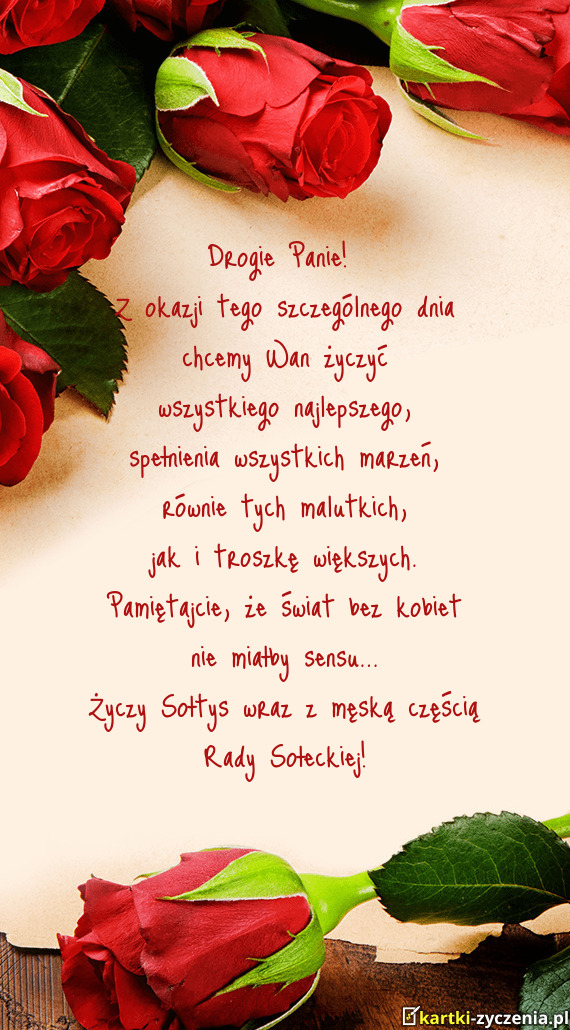 Drogie Panie!
Z okazji tego szczególnego dnia
chcemy Wan życzyć
wszystkiego najlepszego,
spełnienia wszystkich marzeń,
równie tych malutkich,
jak i troszkę większych.
Pamiętajcie, że świat bez kobiet
nie miałby sensu...
Życzy Sołtys wraz z męską częścią
Rady Sołeckiej!
kartki-zyczenia.pl